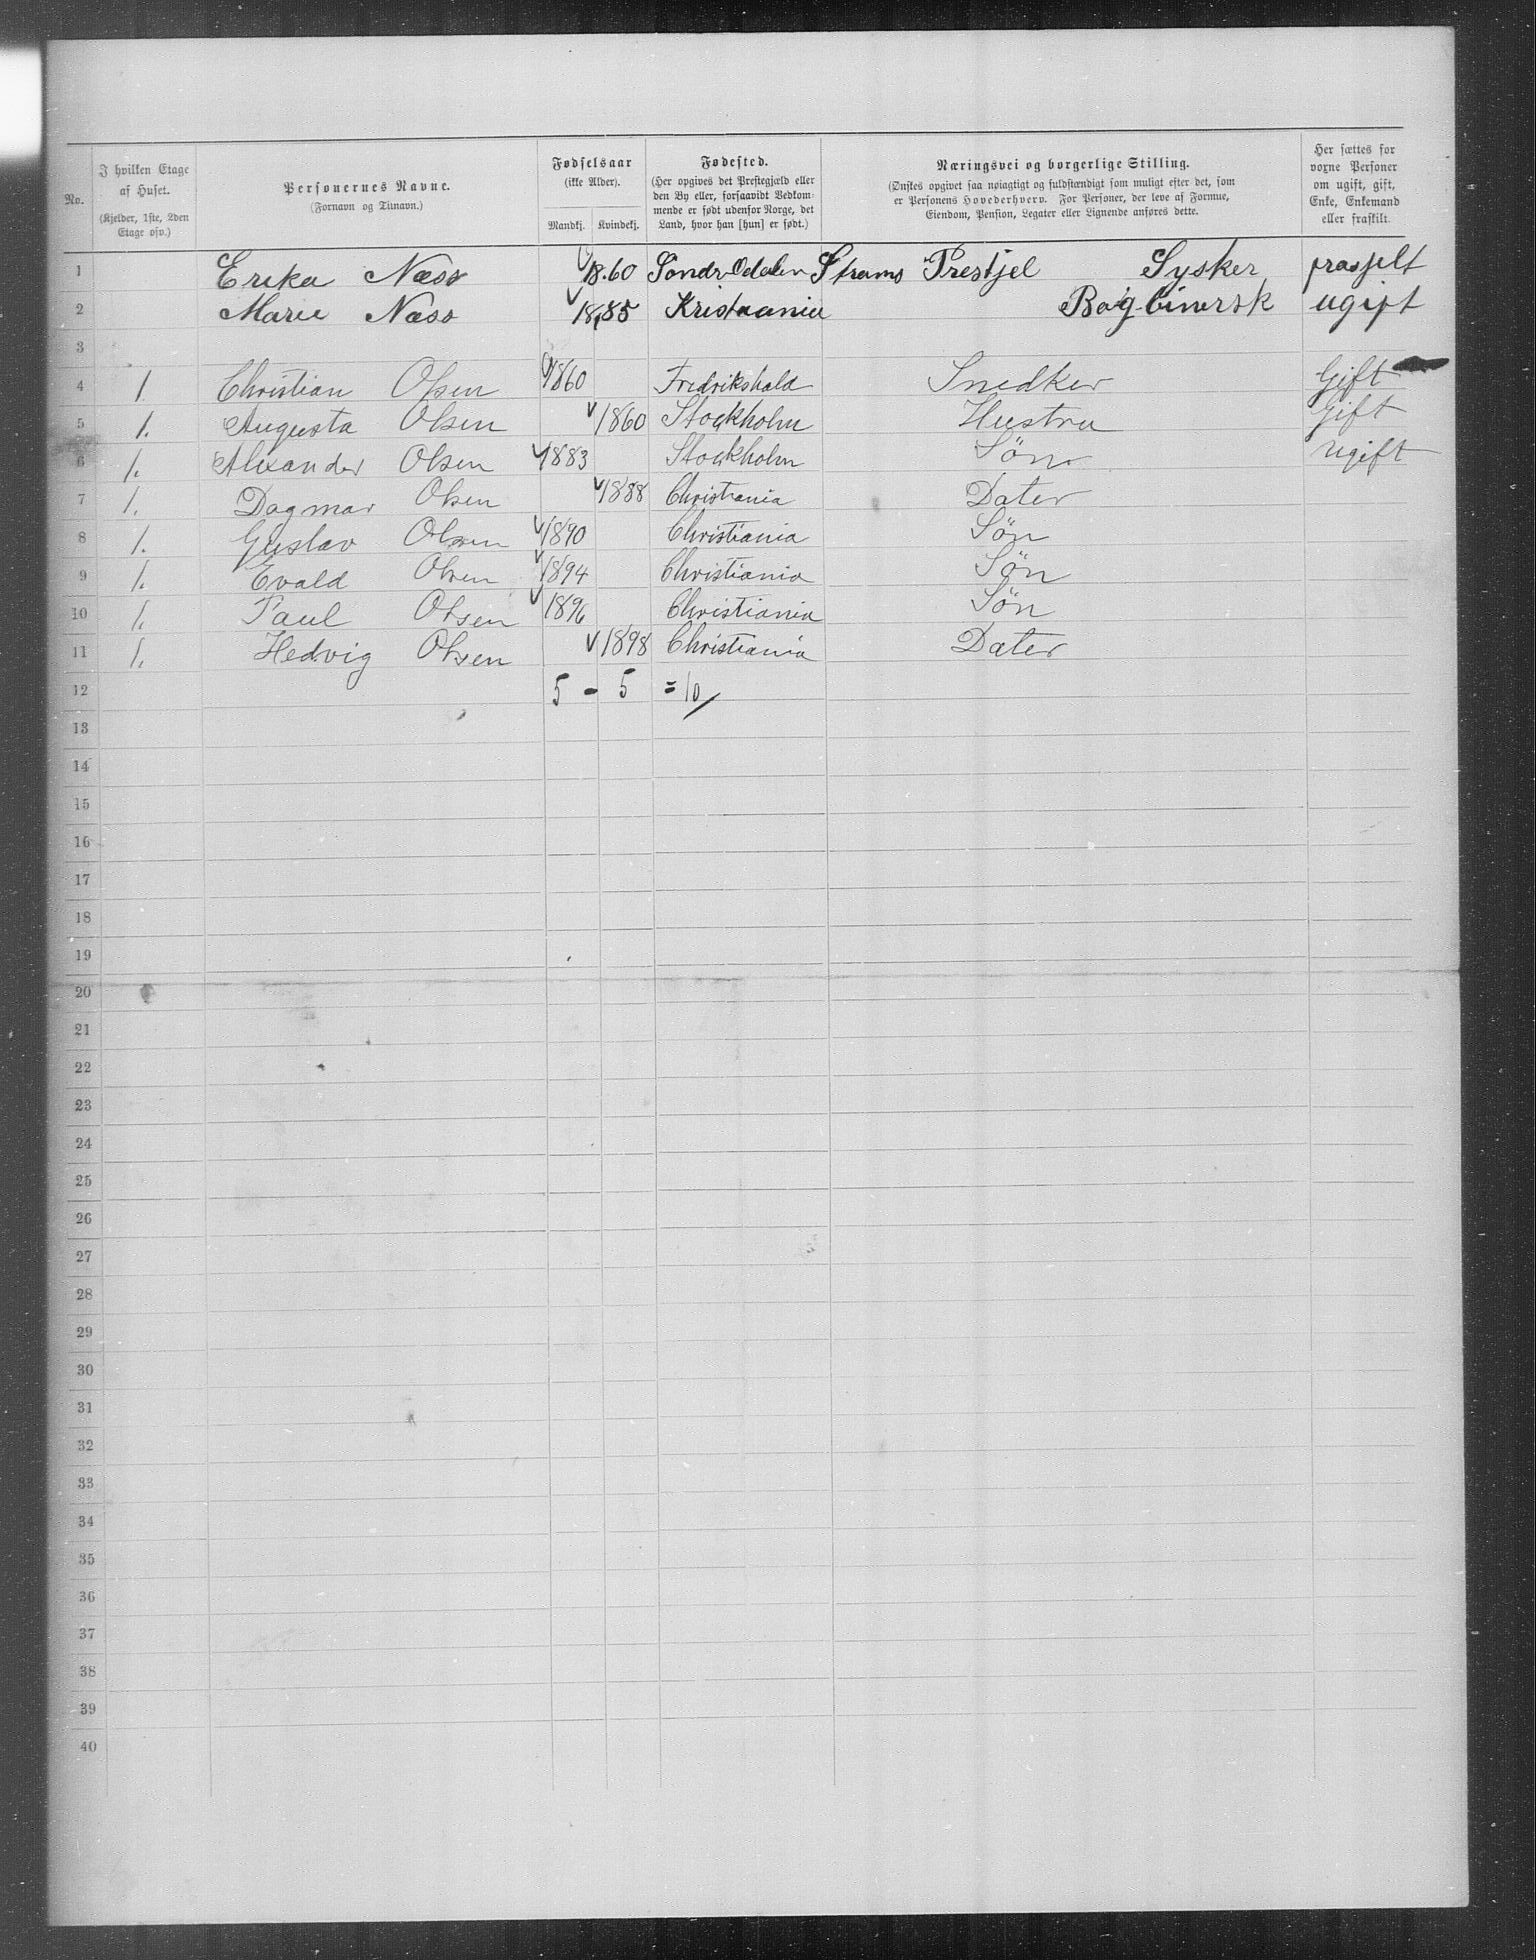 No.
I hvilken Etage
af Huset.
(Kjelder, 1ste, 2den
Etage osv.)
Personernes Navne.
(Fornavn og Tilnavn.)
Fødselsaar
(ikke Alder).
Mandkj. Kvindekj.
Fødested.
(Her opgives det Prestegjæld eller
den By eller, forsaavidt Vedkom-
mende er født udenfor Norge, det
Land, hvor han [hun] er født.)
Næringsvei og borgerlige Stilling.
(Ønskes opgivet saa nøiagtigt og fuldstændigt som muligt efter det, som
er Personens Hovederhverv. For Personer, der leve af Formue,
Eiendom, Pension, Legater eller Lignende anføres dette.
Her sættes for
voxne Personer
om ugift, gift,
Enke, Enkemand
eller fraskilt.
1 Erika Næss 1860 Söndr-Odalen Strøms Prestjel Sysker
2 Marie Næss 1885 Kristaania ugift
3
4 1 Christian Olsen 1860 Fredrikshald Snedker Gift
5 1. Augusta Olsen 1860 Stockholm Hustru Gift
6 1. Alexander Olsen 1883 Stockholm Søn Ugift
7 1. Dagmar Olsen 1888 Christiania Dater
8 1. Gustav Olsen 1890 Christiania Søn
9 1. Evald Olsen 1894 Christiania Søn
10 1. Paul Olsen 1896 Christiania Søn
11 1. Hedvig Olsen 1898 Christiania Dater
12 5 - 5 = 10
13
14
15
16
17
18
19
20
21
22
23
24
25
26
27
28
29
30
31
32
33
34
35
36
37
38
39
40